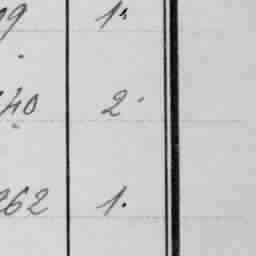 9 1.
40 2.
262 1.